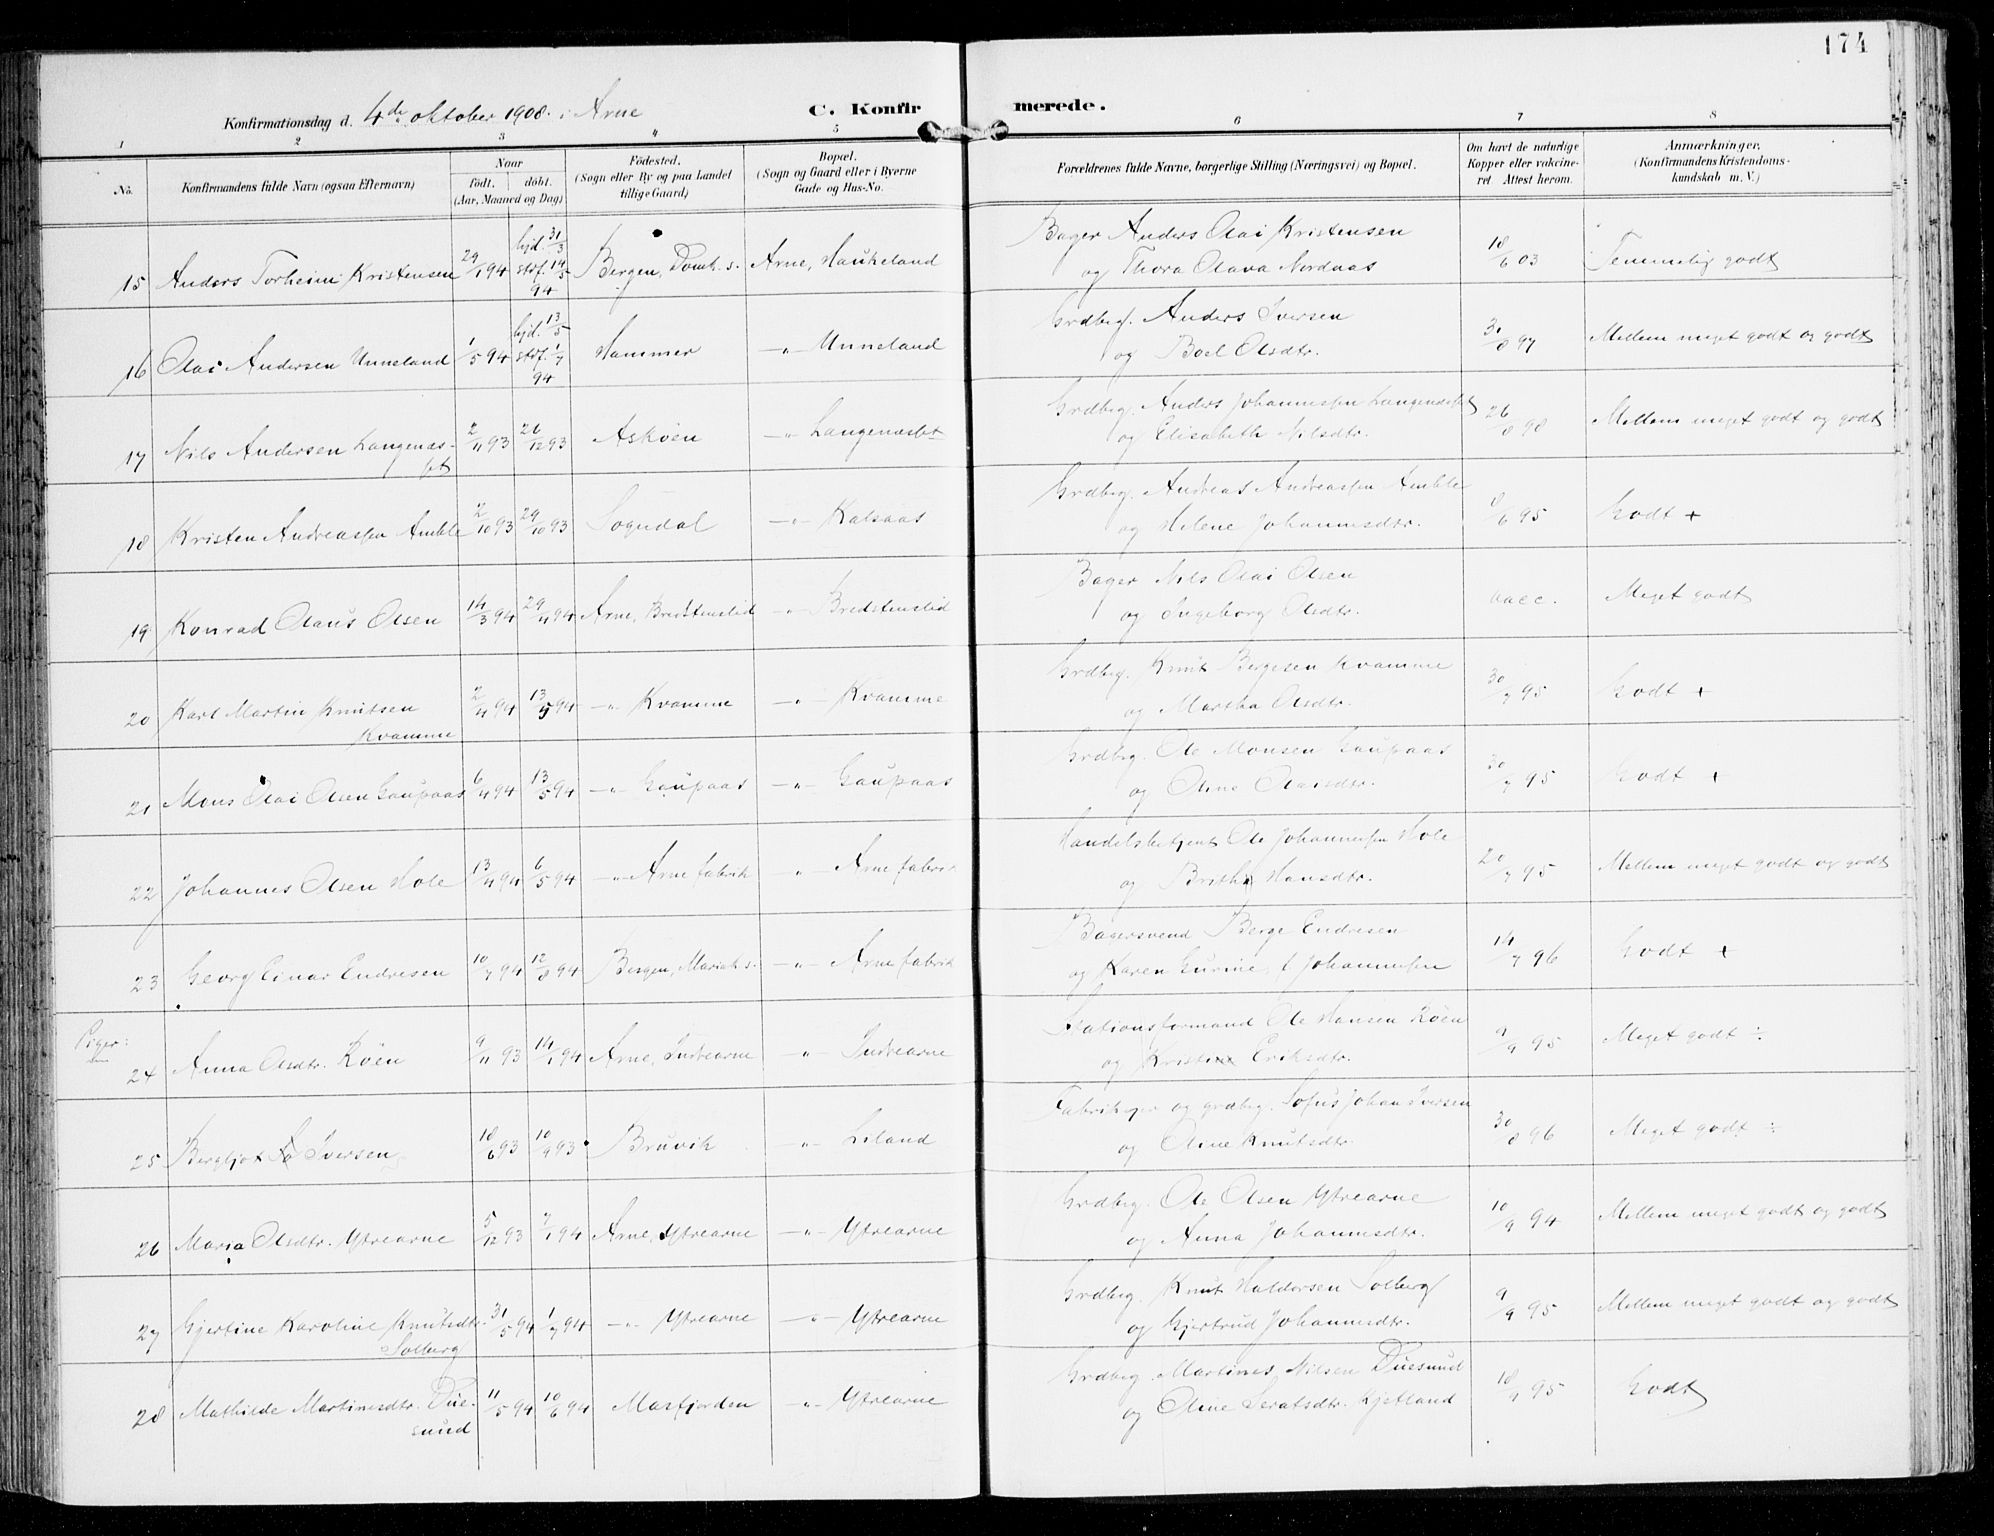 174
Konfirmationsdag d. 4de oktober 1908. i Arne C. Konfirmerede.
1 2 3 4 5 6 7 8
No. Konfirmandens fulde Navn (ogsaa Efternavn) Naar født. døbt. (Aar, Maaned og Dag) Fødested. (Sogn eller By og paa Landet tillige Gaard) Bopæl. (Sogn og Gaard eller i Byerne Gade og Hus-No. Forældrenes fulde Navne, borgerlige Stilling (Næringsvei) og Bopæl. Om havt de naturlige Kopper eller vakcineret. Attest herom. Anmærkninger. (Konfirmandens Kristendomskundskab m. V.)
15 Anders Torheim Kristensen 29/1 94 hjd. 31/3 stdf. 14/5 94 Bergen, Domk. s. Arne, Haukeland Bager Anders Olai Kristensen
og Thora Olava Nordaas 18/6 03 Temmelig godt
16 Olai Andersen Unneland 1/5 94 hjd. 13/5 stdf. 1/7 94 Hammer -"- Unneland Grdbrg. Anders Iversen
og Boel Olsdtr. 31/8 97 Mellem meget godt og godt
17 Nils Andersen Langenæs-
set 2/11 93 26/12 93 Askøen -"- Langenæset Grdbrg. Anders Johannessen Langenæset
og Elisabeth Nilsdtr. 26/8 98 Mellem meget godt og godt
18 Kristen Andreassen Amble 2/10 93 29/10 93 Sogndal -"- Kalsaas Grdbrg. Andreas Andreassen Amble
og Helene Johannesdtr. 1/6 95 Godt +
19 Konrad Olaus Olsen 14/3 94 29/4 94 Arne, Bredstenslid -"- Bredstenslid Bager Nils Olai Olsen
og Ingeborg Olsdtr. vacc. Meget godt
20 Karl Martin Knutsen
Kvamme 2/4 94 13/5 94 -"- Kvamme -"- Kvamme Grdbrg. Knut Bergesen Kvamme
og Martha Olsdtr. 30/7 95 Godt +
21 Mons Olai Olsen Gaupaas 6/4 94 13/5 94 -"- Gaupaas -"- Gaupaas Grdbrg. Ole Monsen Gaupaas
og Oline Olaisdtr. 30/7 95 Godt +
22 Johannes Olsen Hole 13/4 94 6/5 94 -"- Arne fabrik -"- Arne fabrik Handelsbetjent Ole Johannessen Hole
og Britha Hansdtr. 20/7 95 Mellem meget godt og godt
23 Georg Einar Endresen 10/7 94 12/8 94 Bergen, Mariak. s. -"- Arne fabrik Bagersvend Berge Endresen
og Karen Gurine, f. Johannessen 14/7 96 Godt +
Piger:
24 Anna Olsdtr. Røen 9/11 93 14/1 94 Arne, Indrearne -"- Indrearne Stationsformand Ole Hansen Røen
og Kristine Eriksdtr. 9/9 95 Meget godt ÷
25 Bergljot Iversen 18/6 93 10/9 93 Bruvik -"- Liland Fabrikejer og grdbrg. Sofus Johan Iversen
og Oline Knutsdtr. 30/8 96 Meget godt ÷
26 Maria Olsdtr. Ytrearne 5/12 93 7/1 94 Arne, Ytrearne -"- Ytrearne Grdbrg. Ole Olsen Ytrearne
og Anna Johannesdtr. 10/9 94 Mellem meget godt og godt
27 Gjertine Karoline Knutsdtr.
Solberg 31/5 94 1/7 94 -"- Ytrearne -"- Ytrearne Grdbrg. Knut Haldorsen Solberg
og Gjertrud Johannesdtr. 9/9 95 Mellem meget godt og godt
28 Mathilde Martinesdtr. Due-
sund 11/5 94 10/6 94 Masfjorden -"- Ytrearne Grdbrg. Martines Nilsen Duesund
og Oline Seratsdtr. Kjetland 18/1 95 Godt